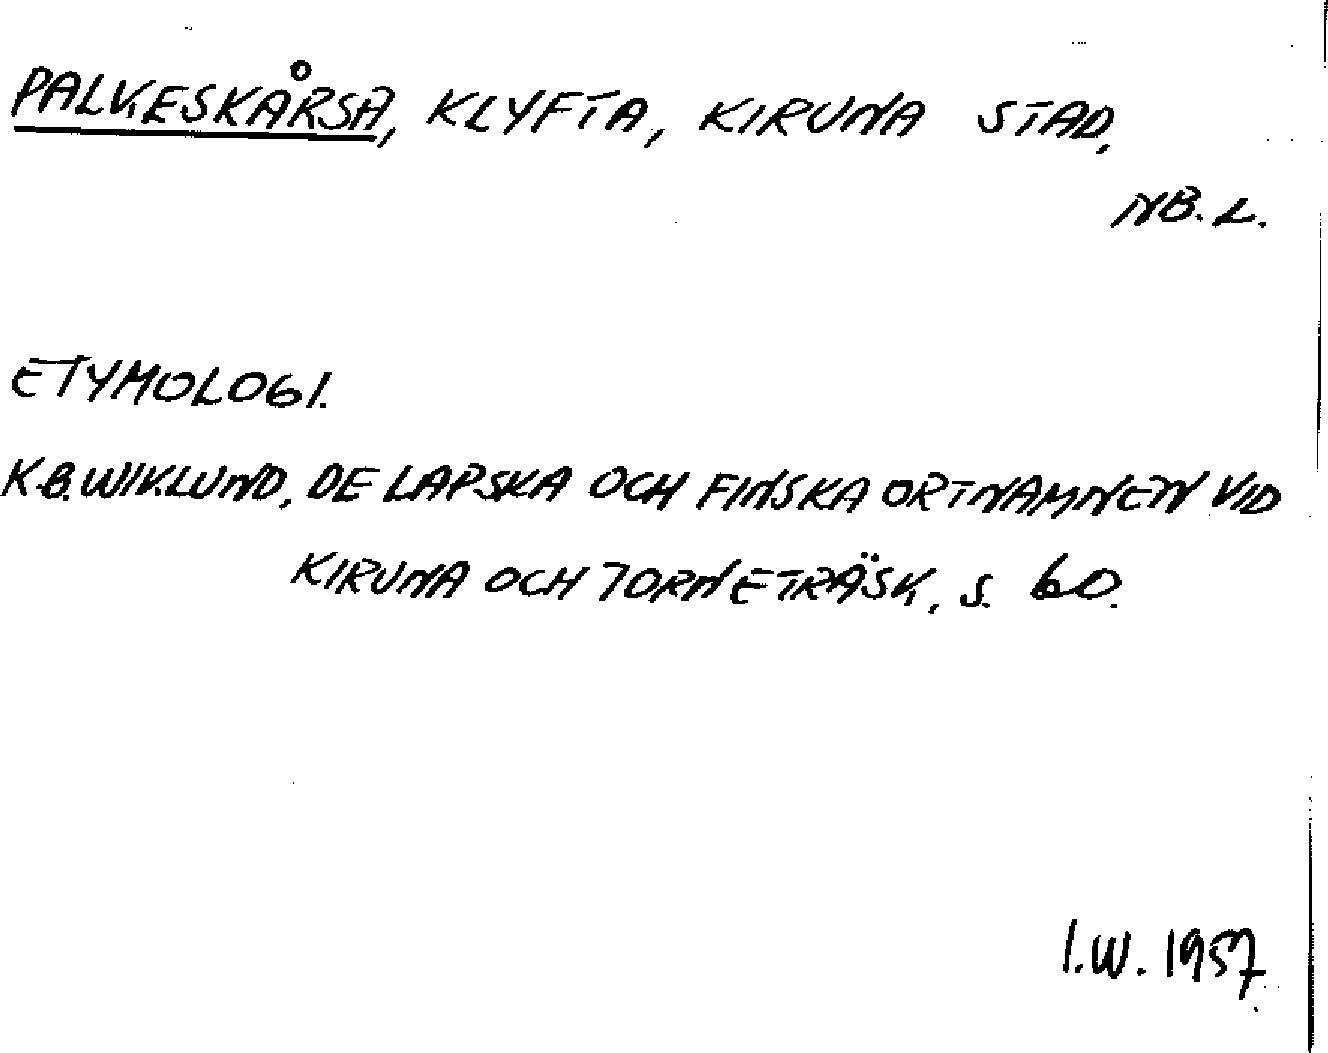 PALKESKÅRSA, KLYFTA, KIRUNA STAD,
NB. L.
ETYMOLOGI.
K.B. WIKLUND, DE LAPSKA OCH FINSKA ORTNAMNEN VID
KIRUNA OCH TORNETRÄSK, S. 60.
I.W. 1957